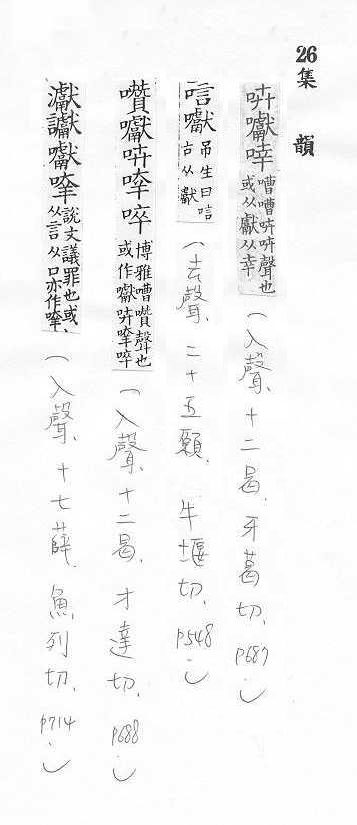 26集　韻
㕫囐㖕嘈嘈㕫㕫聲也或从獻从幸(入聲、十二曷、牙葛切、P687.)
唁囐弔生曰唁古从獻(去聲、二十五願、牛堰切、P548.)
囋囐㕫啐博雅嘈囋聲也或作囐㕫啐(入聲、十二曷、才達切、P688.)
瀐讞囐說文議罪也或从言从口亦作(入聲、十七薛、魚列切、P714.)